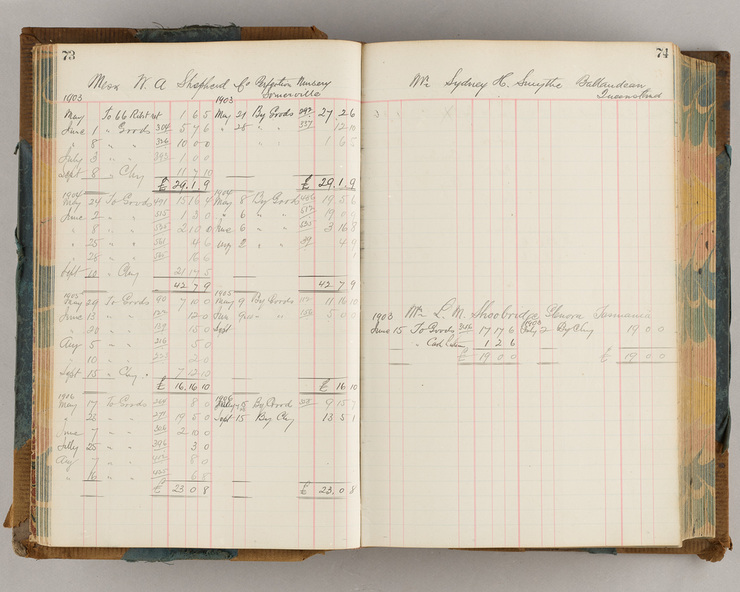 73
Messrs W. A Shepherd & Co Perfection Nursery
Somerville
1903 1903
May To 66 1 6 5 May 21 By Goods 297 27 2 6
June 1 " Goods 304 5 7 6 " 28 " " 337 12 10
" 8 " " 326 10 0 0 " " 1 6 5
July 3 " " 393 1 0 0
Sept 8 " Chq 11 7 10
£ 29. 1. 9 £ 29. 1. 9
1904 1904
May 24 To Goods 491 15 16 4 May 8 By Goods 19 5 6
June 2 " " 515 1 3 0 " 6 " " 19 0
" 8 " " 2 10 0 June 6 " " 3 16 8
" 25 " " 4 6 Aug 2 " " 4 9
" 28 " " 16 6
Sept 10 " Chq 21 17 5
42 7 9 42 7 9
1905 1905
May 29 To Goods 7 10 0 May 9 By Goods 11 16 10
June 13 " " 12 0 Jun 9 " " 5 0 0
" 20 " " 15 0 Sept
Aug 5 " " 216 5 0
" 10 " " 223 2 0
Sept 15 " Chq 7 12 10
£ 16. 16. 10 £ 16 10
1906 1906
May 17 To Goods 264 8 0 By Good 9 15 7
" 28 " " 271 19 5 0 Sept 15 By Chq 13 5 1
June 7 " " 306 2 10 0
July 25 " " 396 3 0
Aug 7 " " 8 0
" 16 " " 6 8
£ 23. 0 8 £ 23. 0 8
74
Mr Sydney H. Smythe Ballandean
Queensland
1903 Mr L. M. Shoobridge Plenora Tasmania
June 15 To Goods 316 17 17 6 1903 July 2 By Chq 19 0 0
" 1 2 6
£ 19 0 0 £ 19 0 0